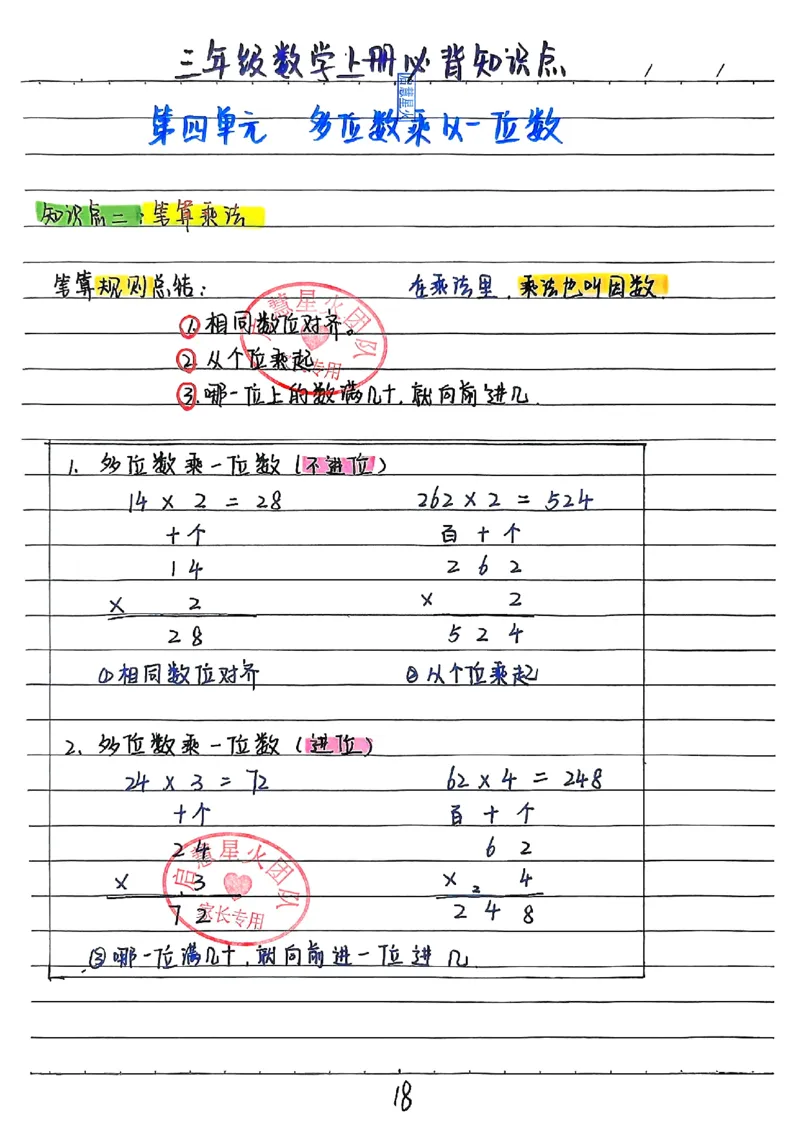 三年级数学上册必背知识点
第四单元 多位数乘以一位数
知识点二：笔算乘法
笔算规则总结： 在乘法里，乘法也叫因数.
①相同数位对齐。
②从个位乘起
③.哪一位上的数满几十，就向前进几.
启慧星火团队
家长专用
1. 多位数乘一位数（不进位）
14 × 2 = 28 262 × 2 = 524
十个 百十个
14 262
× 2 × 2
28 524
①相同数位对齐 ②从个位乘起
2. 多位数乘一位数（进位）
24 × 3 = 72 62 × 4 = 248
十个 百十个
24 62
× 3 × 2 4
72 248
启慧星火团队
家长专用
③哪一位满几十，就向前进一位进几
18